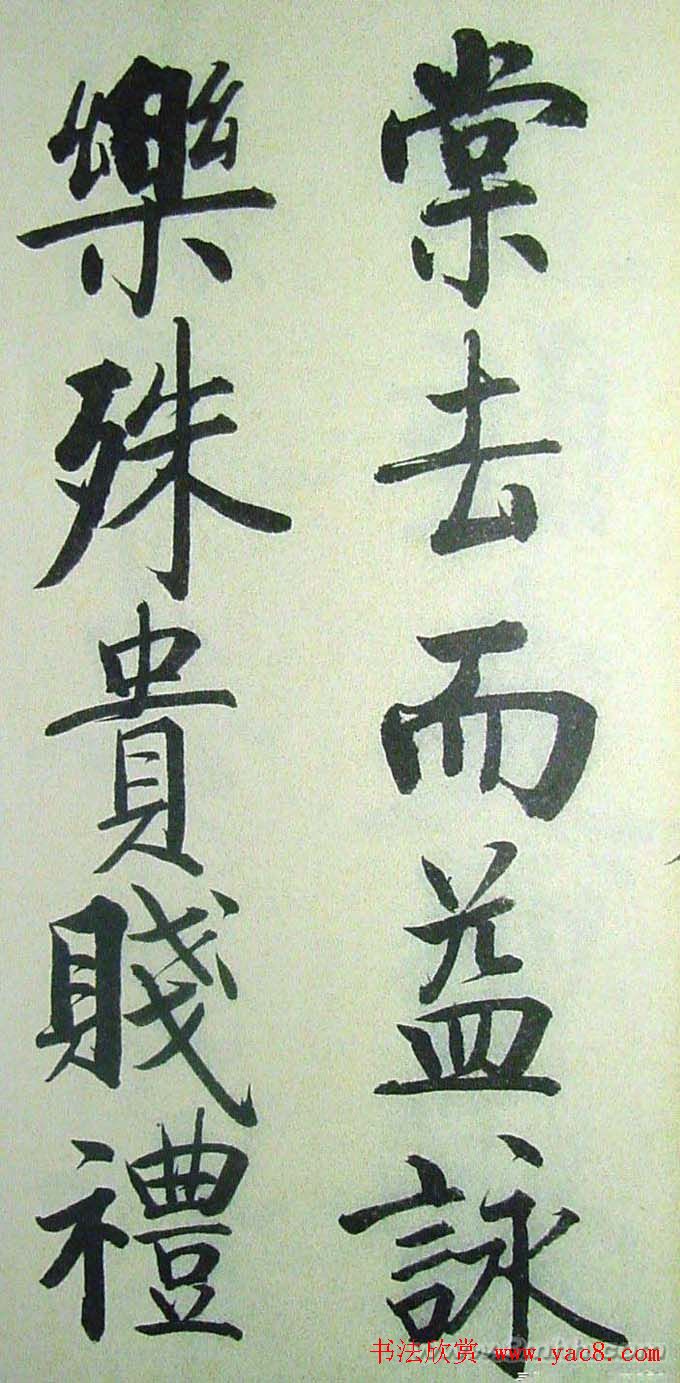 棠去而益詠
樂殊貴賤禮
书法欣赏 www.yac8.com